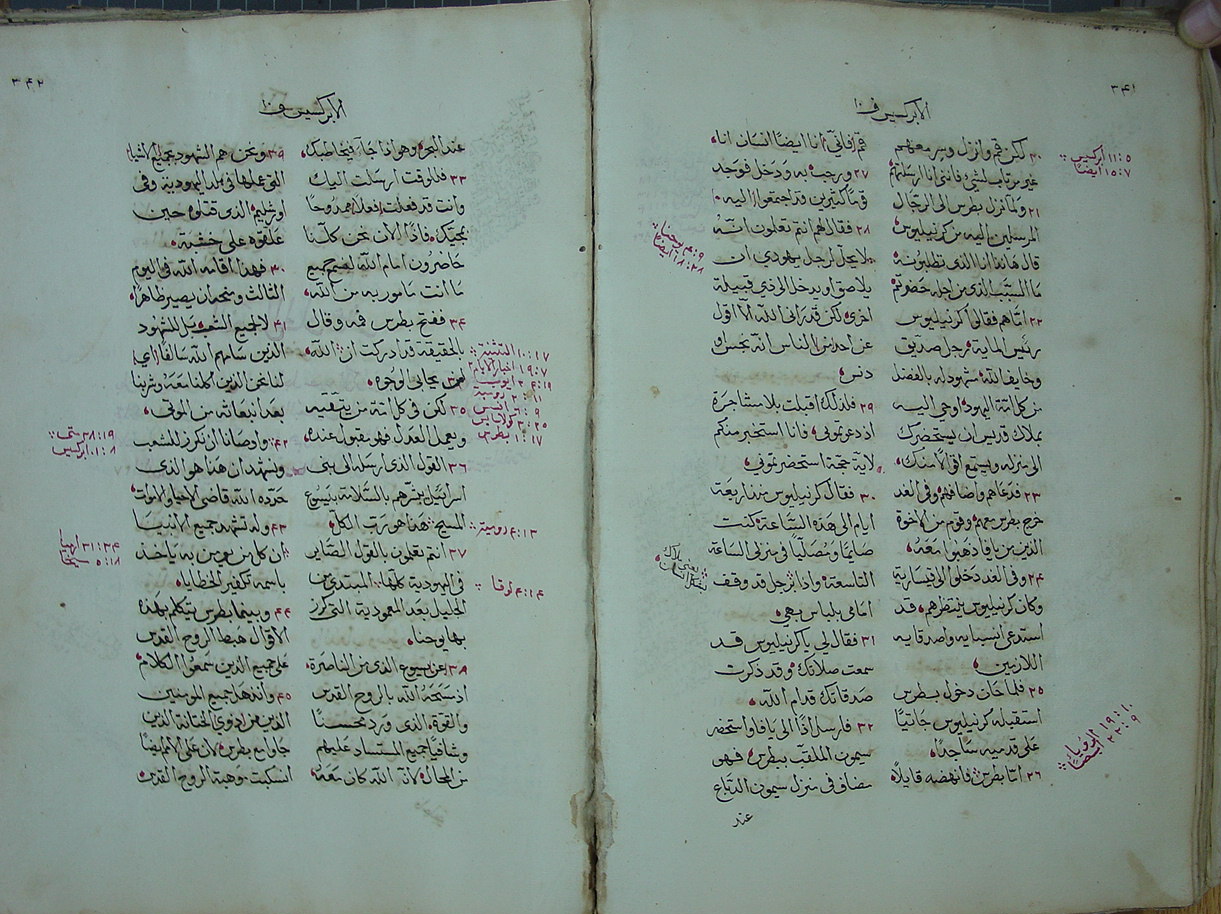 ٣٤١
الابركسيس ف ١٠
٢٠ لكن قم وانزل وسر معهم
غير مرتاب لشي فانني انا ارسلتهم
٢١ ولما نزل بطرس الى الرجال
المرسلين اليه من كرنيليوس
قال هانذا انا الذى تطلبونه
ما السبب الذى من اجله حضرتم
٢٢ اما هم فقالوا كرنيليوس
رئيس الماية رجل صديق
وخايف الله مشهود له بالفضل
من كل امة اليهود اوحي اليه
بملاك قديس ان يستحضرك
الى منزله ويستمع اقوالا منك
٢٣ فدعاهم واضافهم وفي الغد
خرج بطرس معهم وقوم من الاخوة
الذين من يافا ذهبوا معه
٢٤ وفى الغد دخلوا الى قيسارية
وكان كرنيليوس ينتظرهم قد
استدعى انسبايه واصدقايه
اللازمين
٢٥ فلما حان دخول بطرس
استقبله كرنيليوس جاثيًا
على قدميه ساجدًا
٢٦ اما بطرس فانهضه قايلًا
قم فاني انا ايضًا انسان انا
٢٧ ورحب به ودخل فوجد
قومًا كثيرين قد اجتمعوا اليه
٢٨ فقال لهم انتم تعلمون انه
لا يحل لرجل يهودي ان
يلاصق ويدخل الى ذي قبيلة
اخرى لكن قد رانى الله الا اقول
عن احد من الناس انه نجس او
دنس
٢٩ فلذلك اقبلت بلا مشاجرة
اذ دعوتموني فانا استخبر منكم
لاية حجة استحضرتموني
٣٠ فقال كرنيليوس منذ اربعة
ايام الى هذه الساعة كنت
صايمًا ومصليًا في منزلى الساعة
التاسعة واذا برجل قد وقف
امامى بلباس بهي
٣١ فقال لي يا كرنيليوس قد
سمعت صلاتك وقد ذكرت
صدقاتك قدام الله
٣٢ فارسل اذًا الى يافا واستحضر
سيمون الملقب ببطرس فهو
مضاف فى منزل سيمون الدباغ
عند
٥:١١ ابركسيس
٧:١٥ ايضًا
٩:٤ يوحنا
٢٨:١٨ ايضًا
١٠:١٩ الرويا
٩:٢٢ ايضًا
٣٤٢
الابركسيس ف ١٠
عند البحر وهو اذا جآ يخاطبك
٣٣ فللوقت ارسلت اليك
وانت قد فعلت فعلا ممدوحًا
بمجيك فاذًا الان نحن كلنا
حاضرون امام الله لنسمع جميع
ما انت مامور به من الله
٣٤ ففتح بطرس فمه وقال
بالحقيقة قد ادركت ان الله
ليس يحابي الوجوه
٣٥ لكن فى كل امة من يتقيه
ويعمل العدل فهو مقبول عنده
٣٦ القول الذى ارسله الى بنى
اسرائيل يبشرهم بالسلامة بيسوع
المسيح هذا هو رب الكل
٣٧ انتم تعلمون بالقول الصاير
فى اليهودية كلها المبتدي من
الجليل بعد المعمودية التى كرز
بها يوحنا
٣٨ عن يسوع الذى من الناصرة
اذ مسحه الله بالروح القدس
والقوة الذى ورد محسنًا
وشافيًا جميع المستساد عليهم
من المحال لان الله كان معه
٣٩ ونحن هم الشهود بجميع الاشيا
التى عملها فى بلد اليهودية وفى
اورشليم الذى قتلوه حين
علقوه على خشبة
٤٠ فهذا اقامه الله فى اليوم
الثالث ومنحه ان يصير ظاهرًا
٤١ لا لجميع الشعب بل لشهود
الذين سامهم الله سالفًا اي
لنا نحن الذين اكلنا معه وشربنا
بعد انبعاثه من الموتى
٤٢ واوصانا ان نكرز للشعب
ونشهد ان هذا هو الذى
حدده الله قاضى الاحيا والاموات
٤٣ وله تشهد جميع الانبيا
ان كل من يومن به ياخذ
باسمه تكفير الخطايا
٤٤ وبينما بطرس يتكلم بهذه
الاقوال هبط الروح القدس
على جميع الذين سمعوا الكلام
٤٥ وانذهل جميع المومنين
الذين من ذوي الختانة الذين
جاوا مع بطرس لان على الامم ايضًا
انسكبت موهبة الروح القدس
١٧:١٠ التثنية
٧:١٩ اخبار الايام ٢
١٩:٣٤ ايوب
١١:٢ رومية
٩:٦ افسس
٢٥:٣ كولاسايس
١٧:١ بطرس
١٤:٤ لوقا
٣٤:٣١ ارميا
١٨:٥ ميخا